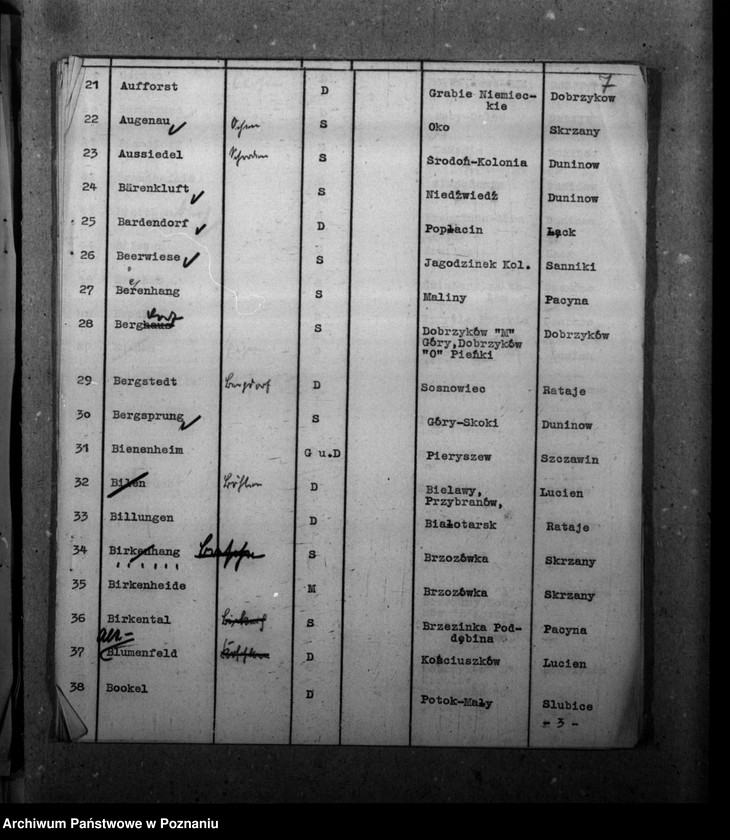 7
21 Aufforst D Grabie Niemiec- Dobrzyków
kie
22 Augenau S Oko Skrzany
23 Aussiedel S Środoń-Kolonia Duninow
24 Bärenkluft S Niedźwiedź Duninow
25 Bardendorf D Popłacin Łąck
26 Beerwiese S Jagodzinek Kol. Sanniki
27 Berenhang S Maliny Pacyna
28 Berghaus dorf S Dobrzyków "M" Dobrzyków
Góry,Dobrzyków
"O" Pieńki
29 Bergstedt Bergdorf D Sosnowiec Rataje
30 Bergsprung S Góry-Skoki Duninow
31 Bienenheim G u.D Pieryszew Szczawin
32 Bilen D Bielawy, Lucien
Przybranów,
33 Billungen D Białotarsk Rataje
34 Birkenhang S Brzozówka Skrzany
35 Birkenheide M Brzozówka Skrzany
36 Birkental S Brzezinka Pod- Pacyna
dębina
37 Blumenfeld D Kościuszków Lucien
38 Bookel D Potok-Mały Slubice
- 3 -
Archiwum Państwowe w Poznaniu